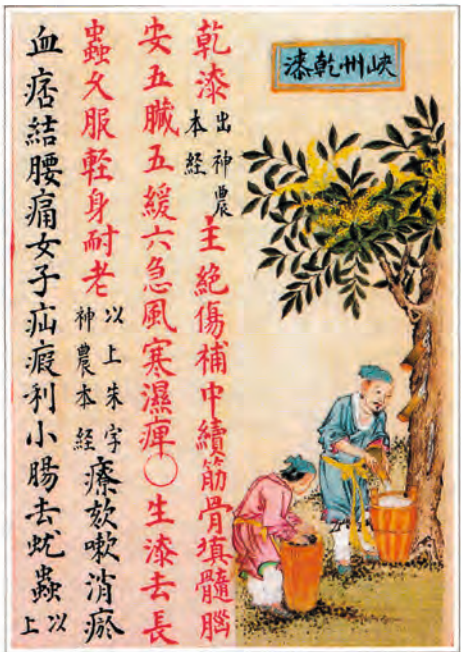 峡州乾漆
乾漆出神農本経主絶傷補中續筋骨填髓腦
安五臟五緩六急風寒濕痺○生漆去長
蟲久服輕身耐老以上朱字神農本経療欬嗽消瘀
血痞結腰痛女子疝瘕利小腸去蚘蟲以上